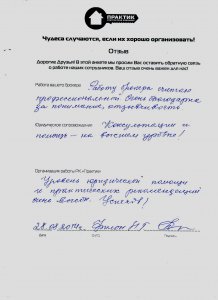 ПРАКТИК
Чудеса случаются, если их хорошо организовать!
Отзыв
Дорогие Друзья! В этой анкете мы просим Вас оставить обратную связь
о работе наших сотрудников. Ваш отзыв очень важен для нас!
Работа вашего брокера
Работу брокера считаю
профессиональной. Очень благодарна
за понимание, отзывчивость
Юридическое сопровождение:
Консультации и
помощь — на высшем уровне!
Организация работы РК «Практик»
Уровень юридической помощи
и практических рекомендаций
очень высок. Успехов!
28.08.2014г.
Дата
Ф.И.О.
Подпись